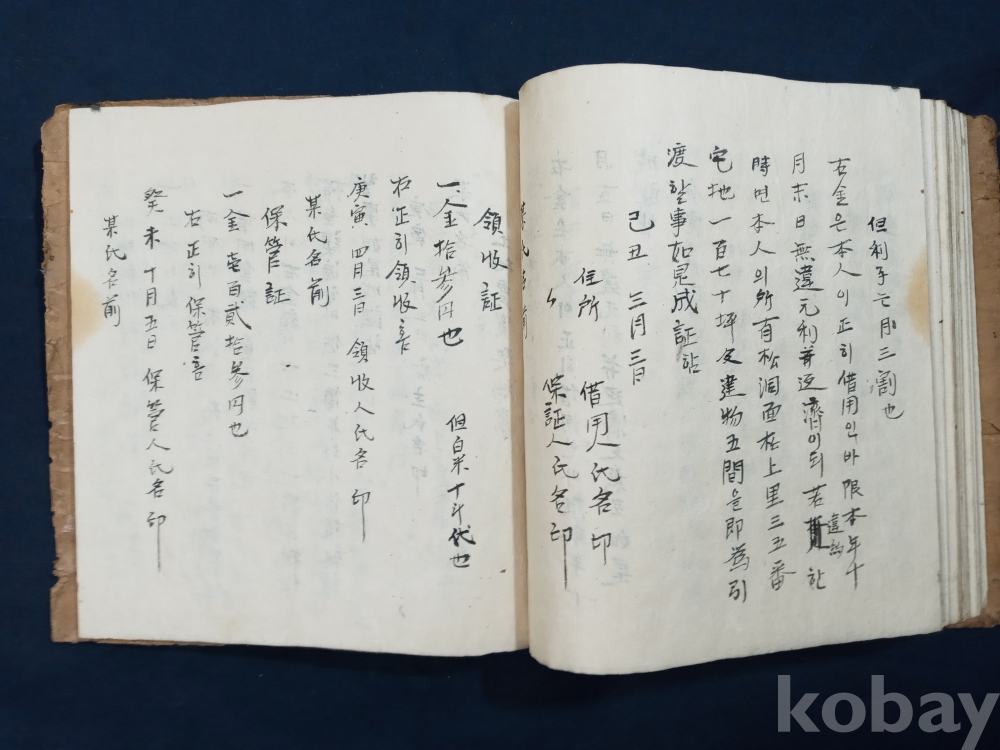 但利子는 月 三割也
右金은 本人이 正히 借用인바 限本年十
月末日無違元利並返濟이되 若違約한
時면 本人의 所有 松洞面 柱上里 三五番
宅地 一百七十坪 及 建物 五間을 即爲引
渡할事 如是成証站
己丑 三月 三日
住所 借用人 氏名 印
〃 保証人 氏名 印
某氏名前
領收証
一、金拾參円也 但白米十斗代也
右正히 領收함
庚寅 四月 三日 領收人 氏名 印
某氏名前
保管証
一金壱百貳拾參円也
右正히 保管함
癸未 十月 五日 保管人 氏名 印
某氏名前
kobay